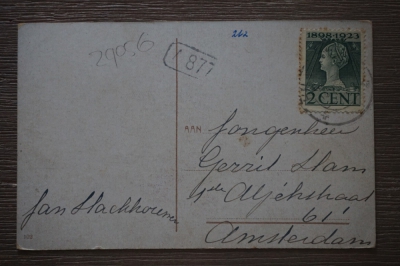 29056
1871
262
1898-1923
2 CENT
AAN
Jongenheer
Gerrit Stam
1ste Atjehstraat
61
Amsterdam
Jan Slackhouwer